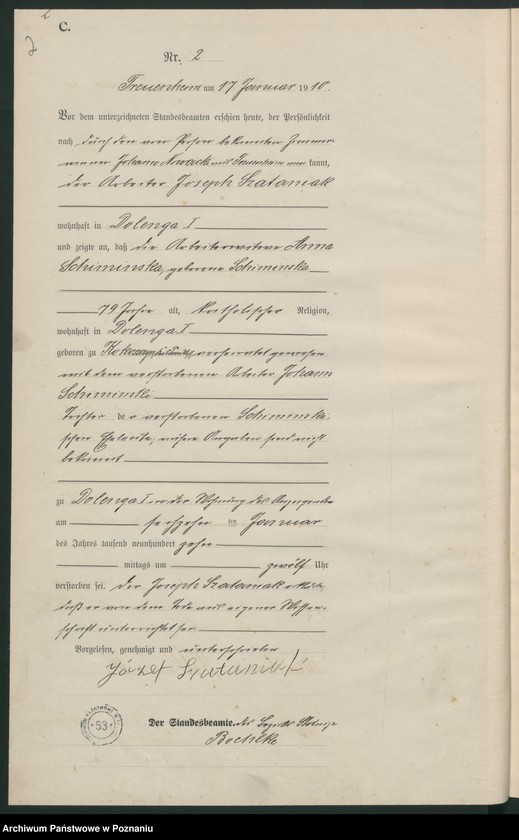 C.
2
Nr. 2
Treuenheim am 17 Januar 1910.
Vor dem unterzeichneten Standesbeamten erschien heute, der Persönlichkeit
nach durch den von Person bekannten Zimmer-
mann Johann Nowack aus Treuenheim aner kannt,
der Arbeiter Joseph Szataniak
wohnhaft in Dolenga I
und zeigte an, daß die Arbeiterwitwe Anna
Schiminska, geborene Schiminska
79 Jahre alt, katholischer Religion,
wohnhaft in Dolenga I
geboren zu verheiratet gewesen
mit dem verstorbenen Arbeiter Johann
Schiminski
Tochter der verstorbenen Schiminski-
schen Eheleute, nähere Angaben sind nicht
bekannt
zu Dolenga I in der Wohnung des Anzeigenden
am sechzehn ten Januar
des Jahres tausend neunhundert zehn
mittags um zwölf Uhr
verstorben sei. Der Joseph Szataniak erklärte,
daß er von dem Tode aus eigener Wissen-
schaft unterrichtet sei.
Vorgelesen, genehmigt und unterschrieben
Józef Szataniak
Der Standesbeamte. des Bezirks
Boehlke
53
Archiwum Państwowe w Poznaniu